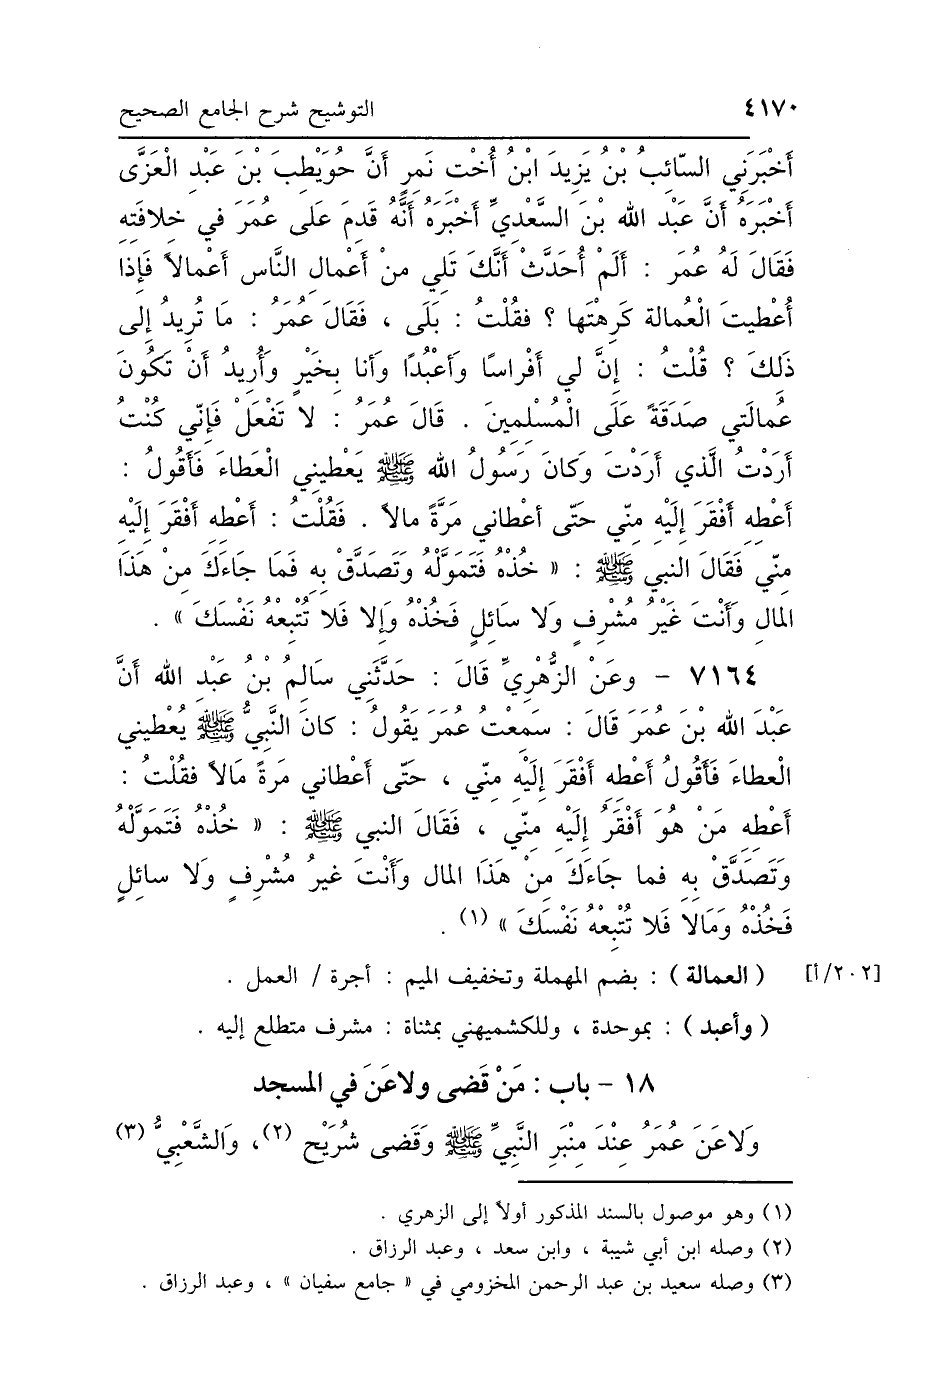 ٤١٧٠ التوشيح شرح الجامع الصحيح
أَخْبَرَنِي السَّائِبُ بْنُ يَزِيدَ ابْنُ أُخْتِ نَمِرٍ أَنَّ حُوَيْطِبَ بْنَ عَبْدِ الْعَزَّى
أَخْبَرَهُ أَنَّ عَبْدَ الله بْنَ السَّعْدِيِّ أَخْبَرَهُ أَنَّهُ قَدِمَ عَلى عُمَرَ في خلافَتِهِ
فَقَالَ لَهُ عُمَر : أَلَمْ أُحَدَّثْ أَنَّكَ تَلِي مِنْ أَعْمالِ النَّاسِ أَعْمالاً فَإِذا
أُعْطِيتَ الْعُمالَةَ كَرِهْتَها ؟ فقُلْتُ : بَلَى ، فَقَالَ عُمَرُ : مَا تُرِيدُ إِلى
ذَلِكَ ؟ قُلْتُ : إِنَّ لي أَفْراسًا وَأَعْبُدًا وَأَنا بِخَيْرٍ وَأُرِيدُ أَنْ تَكُونَ
عُمالَتي صَدَقَةً عَلَى الْمُسْلِمِينَ . قَالَ عُمَرُ : لا تَفْعَلْ فَإِنّي كُنْتُ
أَرَدْتُ الَّذي أَرَدْتَ وَكَانَ رَسُولُ الله ﷺ يَعْطِيني الْعَطاءَ فَأَقُولُ :
أَعْطِهِ أَفْقَرَ إِلَيْهِ مِنّي حَتّى أعْطاني مَرَّةً مالاً . فَقُلْتُ : أَعْطِهِ أَفْقَرَ إِلَيْهِ
مِنّي فَقَالَ النبي ﷺ : « خُذْهُ فَتَمَوَّلْهُ وَتَصَدَّقْ بِهِ فَمَا جَاءَكَ مِن هَذَا
المالِ وَأَنْتَ غَيْرُ مُشْرِفٍ وَلا سَائِلٍ فَخُذْهُ وَإِلا فَلا تُتْبِعْهُ نَفْسَكَ » .
٧١٦٤ - وعَنْ الزُّهْرِيِّ قَالَ : حَدَّثَنِي سَالِمُ بْنُ عَبْدِ الله أَنَّ
عَبْدَ الله بْنَ عُمَرَ قَالَ : سَمِعْتُ عُمَرَ يَقُولُ : كانَ النَّبِيُّ ﷺ يُعْطِيني
الْعطاءَ فَأَقُولُ أَعْطِهِ أَفْقَرَ إِلَيْهِ مِنّي ، حَتّى أَعْطاني مَرةً مَالاً فقُلْتُ :
أَعْطِهِ مَنْ هُوَ أَفْقَرُ إِلَيْهِ مِنّي ، فَقَالَ النبي ﷺ : « خُذْهُ فَتَمَوَّلْهُ
وَتَصَدَّقْ بِهِ فما جَاءَكَ مِنْ هَذَا المالِ وَأَنْتَ غيرُ مُشْرِفٍ وَلا سائِلٍ
فَخُذْهُ وَمَالا فَلا تُتْبِعْهُ نَفْسَكَ » (١) .
[٢٠٢/أ] ( العمالة ) : بضم المهملة وتخفيف الميم : أجرة / العمل .
( وأعبد ) : بموحدة ، وللكشميهني بمثناة : مشرف متطلع إليه .
١٨ - باب : مَنْ قَضى ولاعَنَ في المسجد
وَلاعَنَ عُمَرُ عِنْدَ مِنْبَرِ النَّبِيِّ ﷺ وَقَضى شُرَيْح (٢)، وَالشَّعْبِيُّ (٣)
(١) وهو موصول بالسند المذكور أولاً إلى الزهري .
(٢) وصله ابن أبي شيبة ، وابن سعد ، وعبد الرزاق .
(٣) وصله سعيد بن عبد الرحمن المخزومي في « جامع سفيان » ، وعبد الرزاق .